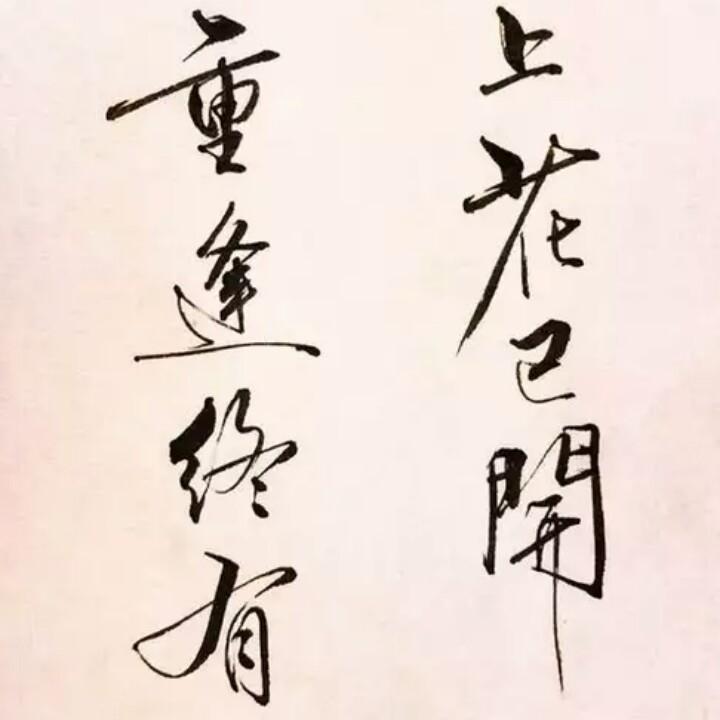 上花已開
重逢終有